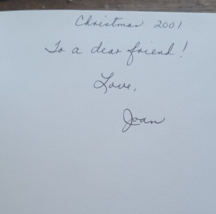 Christmas 2001
To a dear friend!
Love,
Joan